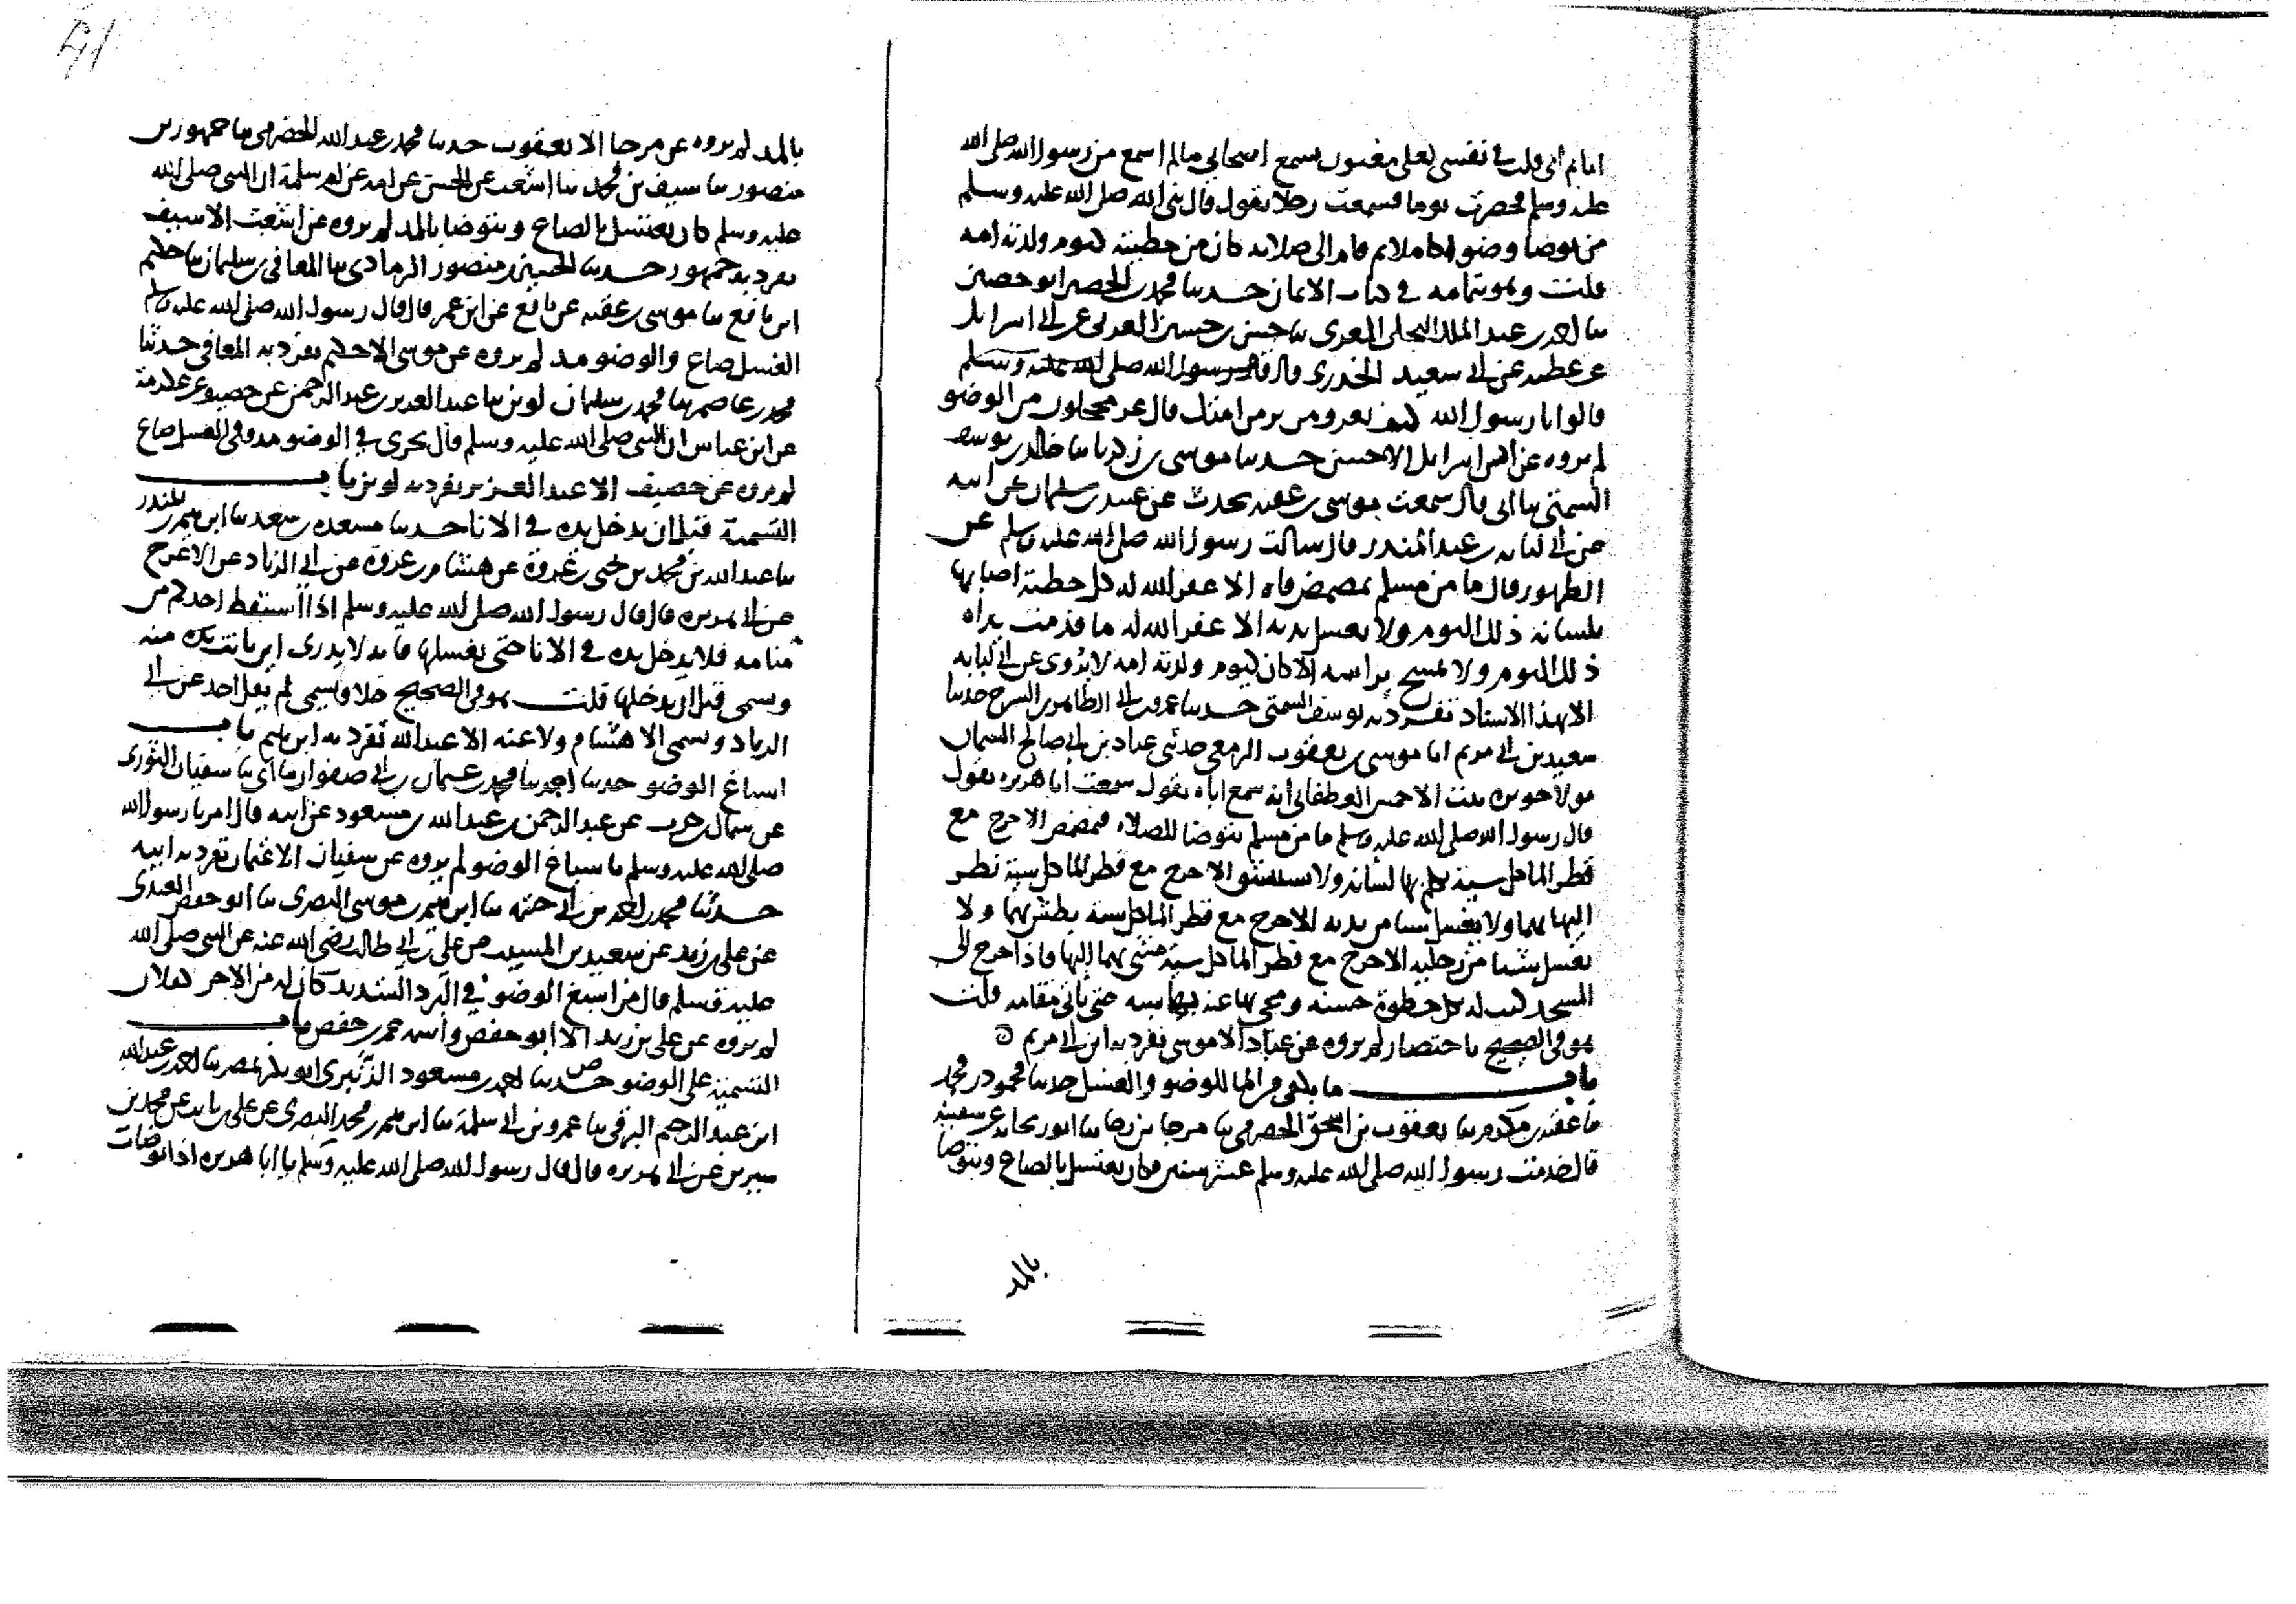 اما م اني قلت في نفسي لعلي مغبون يسمع اصحابي مالم اسمع من رسول الله صلى الله
عليه وسلم فحضرت يوما فسمعت رجلا يقول قال نبي الله صلى الله عليه وسلم
من توضا وضوا كاملا ثم قام الى صلاته كان من خطيته كيوم ولدته امه
قلت وهو بتمامه في كتاب الايمان حدثنا محمد بن الحصين ابو حصين
ثنا احمد بن عبد الملك حسن بن حسين العرني عن ابي اسرايل
عن عطيه عن ابي سعيد الخدري قال قال رسول الله صلى الله عليه وسلم
قالوا يا رسول الله كيف تعرف من لم تر من امتك قال غر محجلون من الوضو
لم يروه عن ابي اسرايل الا حسن حدثنا موسى بن زكريا ثنا خالد بن يوسف
السمتي ثنا ابي قال سمعت موسى بن عقبه يحدث عن عبيد بن سلمان عن ابيه
عن ابي لبابه بن عبد المنذر قال سالت رسول الله صلى الله عليه وسلم عن
الطهور فقال ما من مسلم يمضمض فاه الا غفر الله له كل خطية اصابها
بلسانه ذلك اليوم ولا يغسل يديه الا غفر الله له ما قدمت يداه
ذلك اليوم ولا يمسح براسه الا كان كيوم ولدته امه لا يروى عن ابي لبابه
الا بهذا الاسناد تفرد به يوسف السمتي حدثنا عمرو بن ابي الطاهر بن السرح حدثنا
سعيد بن ابي مريم انا موسى بن يعقوب الزمعي حدثني عباد بن ابي صالح السمان
مولا جويريه بنت الاحمس الغطفاني انه سمع اباه يقول سمعت ابا هريره يقول
قال رسول الله صلى الله عليه وسلم ما من مسلم يتوضا للصلاه فمضمض الا خرج مع
قطر الما كل سية تكلم بها لسانه ولا يستنشق الا خرج مع قطر الما كل سية نظر
اليها بهما ولا يغسل شيا من يديه الا خرج مع قطر الما كل سية بطش بهما ولا
يغسل شيا من رجليه الا خرج مع قطر الما كل سية مشى بهما اليها فاذا خرج الى
المسجد كتب له بكل خطوة حسنه ومحي بها عنه سيه حتى ياتي مقامه قلت
هو في الصحيح باختصار لم يروه عن عباد الا موسى تفرد به ابن ابي مريم ه
باب ما يكفي من الما للوضو والغسل حدثنا محمود بن محمد
ثنا عقبه بن مكرم ثنا يعقوب بن اسحق الحضرمي ثنا مرجا بن رجا ثنا ابو ريحانه عن سفينه
قال خدمت رسول الله صلى الله عليه وسلم عشر سنين فكان يغتسل بالصاع ويتوضا
بالمد
بالمد لم يروه عن مرجا الا يعقوب حدثنا محمد بن عبد الله الحضرمي ثنا جمهور بن
منصور ثنا سيف بن محمد ثنا اشعث عن الحسن عن امه عن ام سلمة ان النبي صلى الله
عليه وسلم كان يغتسل بالصاع ويتوضا بالمد لم يروه عن اشعث الا سيف
تفرد به جمهور حدثنا الحسين بن منصور الرمادي ثنا المعافى بن سليمان ثنا حكيم
ابن نافع ثنا موسى بن عقبه عن نافع عن ابن عمر قال قال رسول الله صلى الله عليه وسلم
الغسل صاع والوضو مد لم يروه عن موسى الا حكيم تفرد به المعافى حدثنا
محمد بن عاصم ثنا محمد بن سليمان لوين ثنا عبد العزيز بن عبد الرحمن عن خصيف عن عكرمة
عن ابن عباس ان النبي صلى الله عليه وسلم قال يجزي في الوضو مد وفي الغسل صاع
لم يروه عن خصيف الا عبد العزيز تفرد به لوين باب
التسمية قبل ان يدخل يده في الانا حدثنا مسعده بن سعد ثنا ابرهيم بن المنذر
ثنا عبد الله بن محمد بن يحيى بن عروة عن هشام بن عروة عن ابي الزناد عن الاعرج
عن ابي هريره قال قال رسول الله صلى الله عليه وسلم اذا استيقظ احدكم من
منامه فلا يدخل يده في الانا حتى يغسلها فانه لا يدري اين باتت يده منه
ويسمي قبل ان يدخلها قلت هو في الصحيح خلا ويسمي لم يقل احد عن ابي
الزناد ويسمي الا هشام ولا عنه الا عبد الله تفرد به ابرهيم باب
اسباغ الوضو حدثنا احمد ثنا محمد بن عثمان بن ابي صفوان ثنا ابي ثنا سفيان الثوري
عن سماك بن حرب عن عبد الرحمن بن عبد الله بن مسعود عن ابيه قال امرنا رسول الله
صلى الله عليه وسلم باسباغ الوضو لم يروه عن سفيان الا عثمان تفرد به ابنه
حدثنا محمد بن احمد بن ابي خيثمه ثنا ابرهيم بن موسى البصري ثنا ابو حفص العبدي
عن علي بن زيد عن سعيد بن المسيب عن علي بن ابي طالب رضي الله عنه عن النبي صلى الله
عليه وسلم قال من اسبغ الوضو في البرد الشديد كان له من الاجر كفلان
لم يروه عن علي بن زيد الا ابو حفص واسمه عمر بن حفص باب
التسمية على الوضو حدثنا احمد بن مسعود الزنبري ابو بكر بمصر ثنا احمد بن عبد الله
ابن عبد الرحيم البرقي ثنا عمرو بن ابي سلمة ثنا ابرهيم بن محمد البصري عن علي بن ثابت عن محمد بن
سيرين عن ابي هريره قال قال رسول الله صلى الله عليه وسلم يا ابا هريره اذا توضات